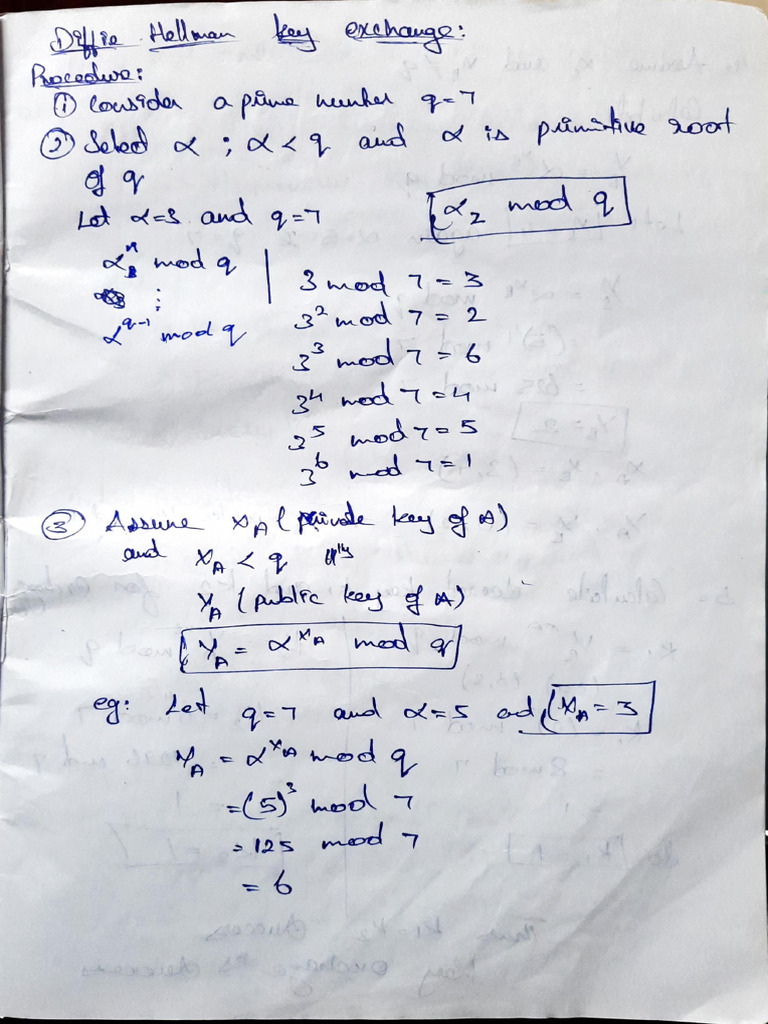 Diffie Hellman key exchange:
Procedure:
① Consider a prime number q=7
② Select α ; α < q and α is primitive root
of q
Let α=3 and q=7
α₂ mod q
mod q
⋮
α^(q-1) mod q
3 mod 7 = 3
3² mod 7 = 2
3³ mod 7 = 6
3⁴ mod 7 = 4
3⁵ mod 7 = 5
3⁶ mod 7 = 1
③ Assume X_A (private key of A)
and X_A < q
Y_A (public key of A)
Y_A = α^(X_A) mod q
eg: Let q=7 and α=5 and X_A = 3
Y_A = α^(X_A) mod q
= (5)³ mod 7
= 125 mod 7
= 6